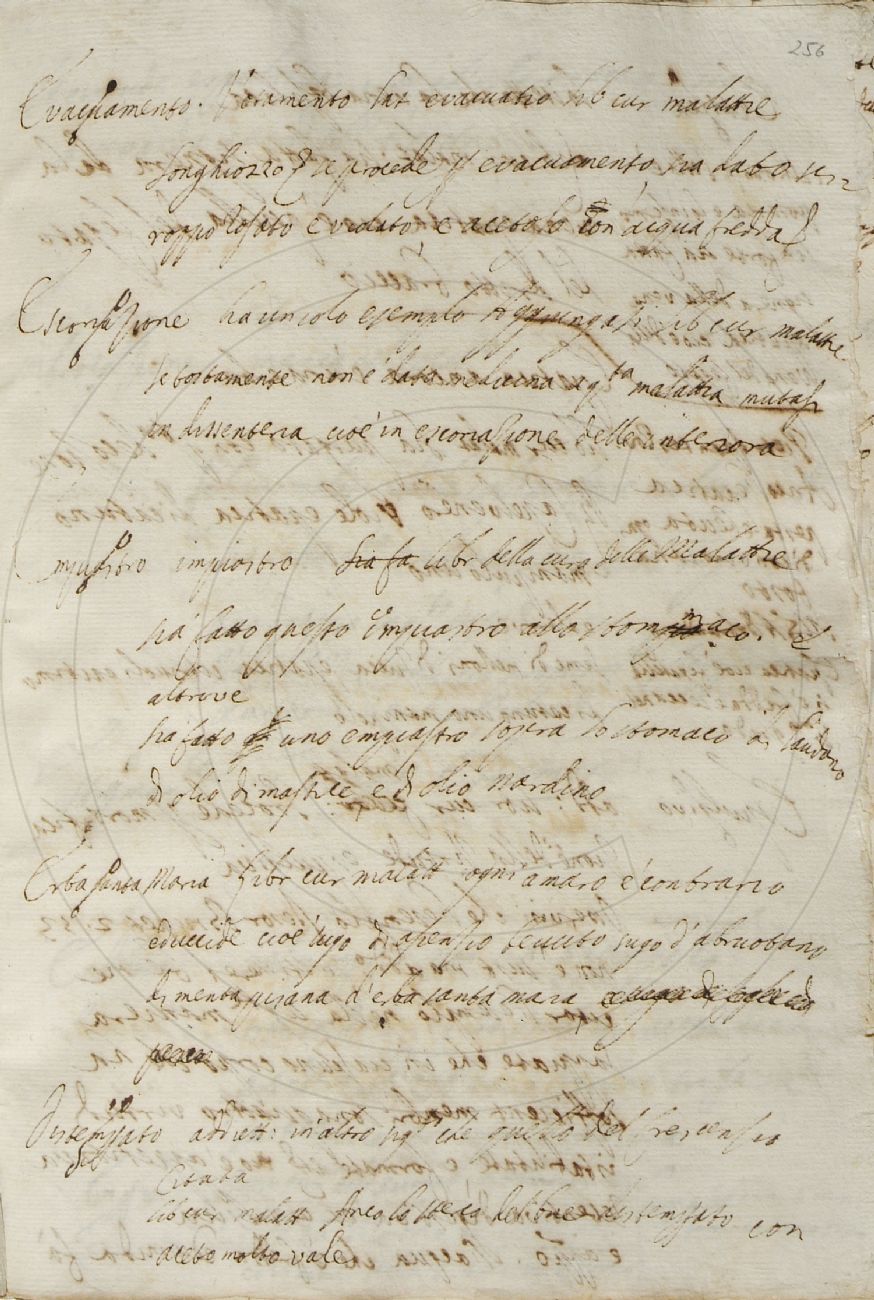 256
Evacuamento. Votamento lat evacuatio lib cur malattie
Songhiozzo se procede p evacuamento sia dato sci
roppo Rosato e violato, e acetoso con acqua fredda
Escoriazione ha un solo esempio Aggiungasi lib cur malattie
se tostamente non è data medicina a qsta malattia mutasi
in dissenteria cioè in escoriazione delle interiora
Empiastro impiastro Sia fa libr della cura delle Malattie
sia fatto questo Empiastro allo stomaco. E
altrove
sia fatto uno empiastro sopra lo stomaco di laudano
d olio di mastice e d olio Nardino
Erba santa Maria Libr cur malatt ogni amaro è contrario
e uccide cioè sugo d'assenzio sugo d'abruotano
di menta pisana d'erba santa maria
Distemperato addiett: in altro sigto che quello del
Citata
lib cur malatt Anco lo sterco del bue distemperato con
aceto molto vale